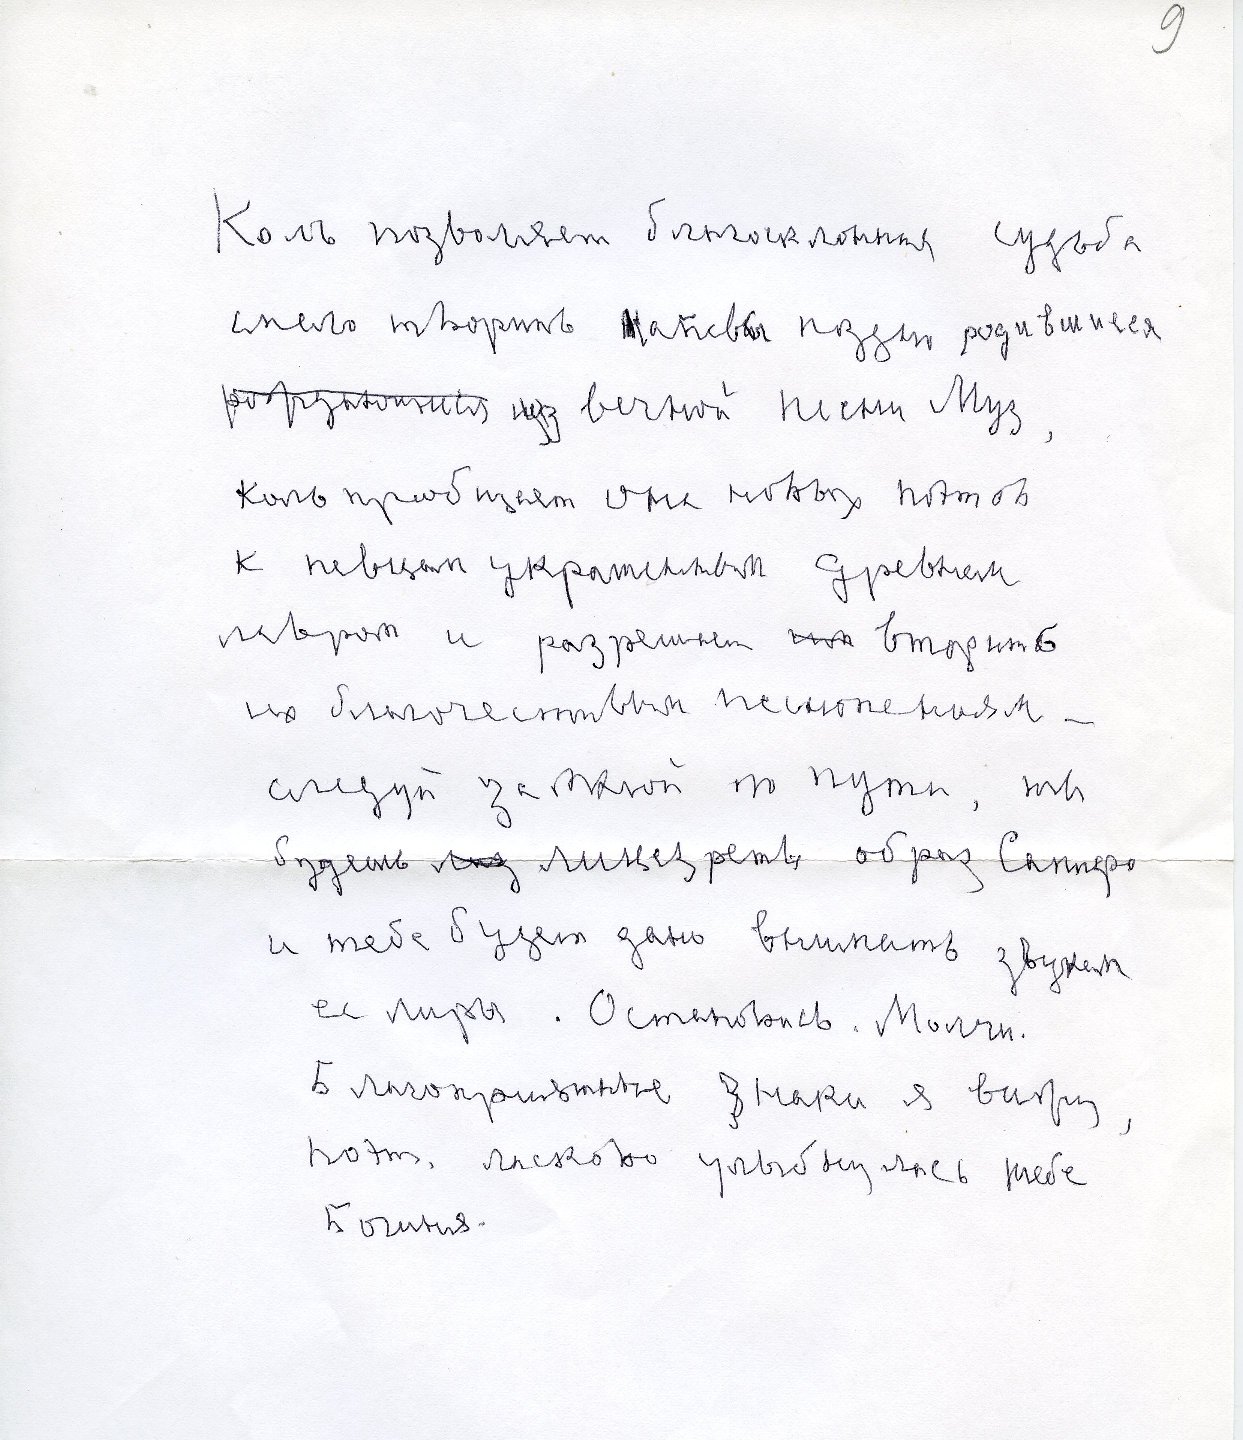 9
Коль позволяет благосклонная судьба
смело творить напевы поздно родившиеся
из вечной песни Муз,
коль приобщает она новых поэтов
к певцам украшенным древним
лавром и разрешает вторить
их благочестивым песнопениям —
следуй за мной по пути, ты
будешь лицезреть образ Сапфо
и тебе будет дано внимать звукам
ее лиры. Остановись. Молчи.
Благоприятные знаки я вижу,
поэт, ласково улыбнулась тебе
Богиня.